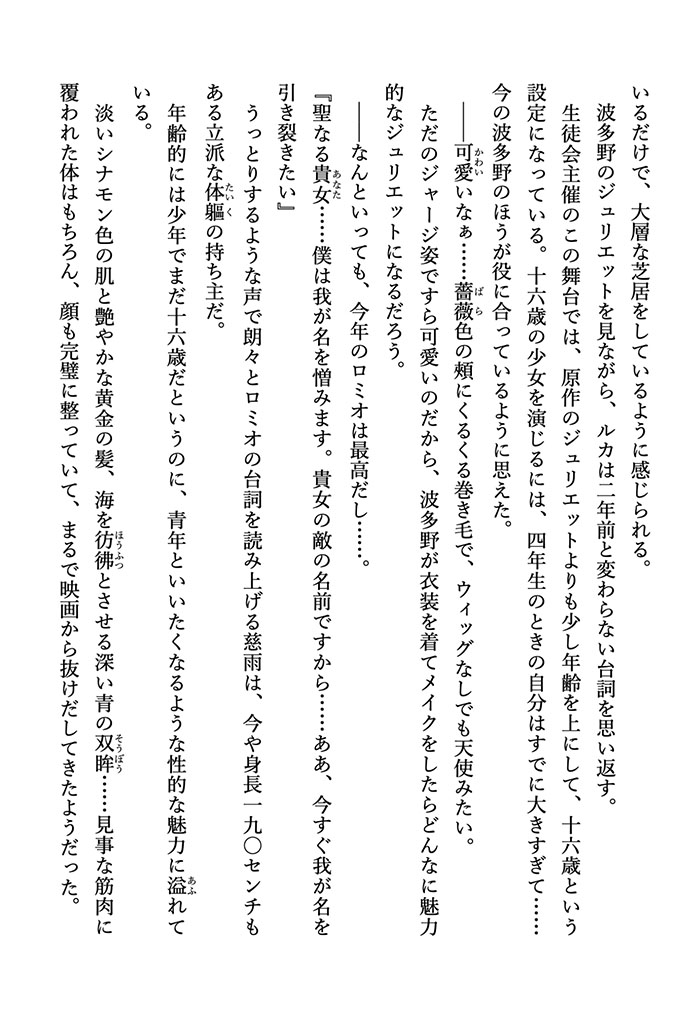 いるだけで、大層な芝居をしているように感じられる。
波多野のジュリエットを見ながら、ルカは二年前と変わらない台詞を思い返す。
生徒会主催のこの舞台では、原作のジュリエットよりも少し年齢を上にして、十六歳という
設定になっている。十六歳の少女を演じるには、四年生のときの自分はすでに大きすぎて……
今の波多野のほうが役に合っているように思えた。
――可愛いなぁ……薔薇色の頰にくるくる巻き毛で、ウィッグなしでも天使みたい。
ただのジャージ姿ですら可愛いのだから、波多野が衣装を着てメイクをしたらどんなに魅力
的なジュリエットになるだろう。
――なんといっても、今年のロミオは最高だし……。
『聖なる貴女……僕は我が名を憎みます。貴女の敵の名前ですから……ああ、今すぐ我が名を
引き裂きたい』
うっとりするような声で朗々とロミオの台詞を読み上げる慈雨は、今や身長一九〇センチも
ある立派な体軀の持ち主だ。
年齢的には少年でまだ十六歳だというのに、青年といいたくなるような性的な魅力に溢れて
いる。
淡いシナモン色の肌と艶やかな黄金の髪、海を彷彿とさせる深い青の双眸……見事な筋肉に
覆われた体はもちろん、顔も完璧に整っていて、まるで映画から抜けだしてきたようだった。